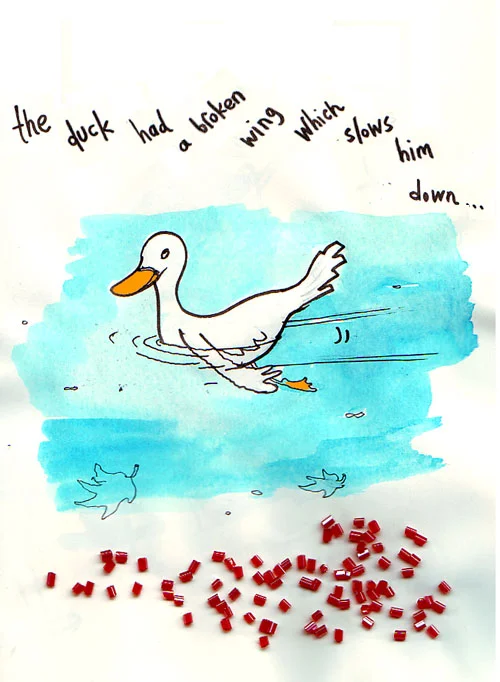 the duck had a broken wing which slows him down...